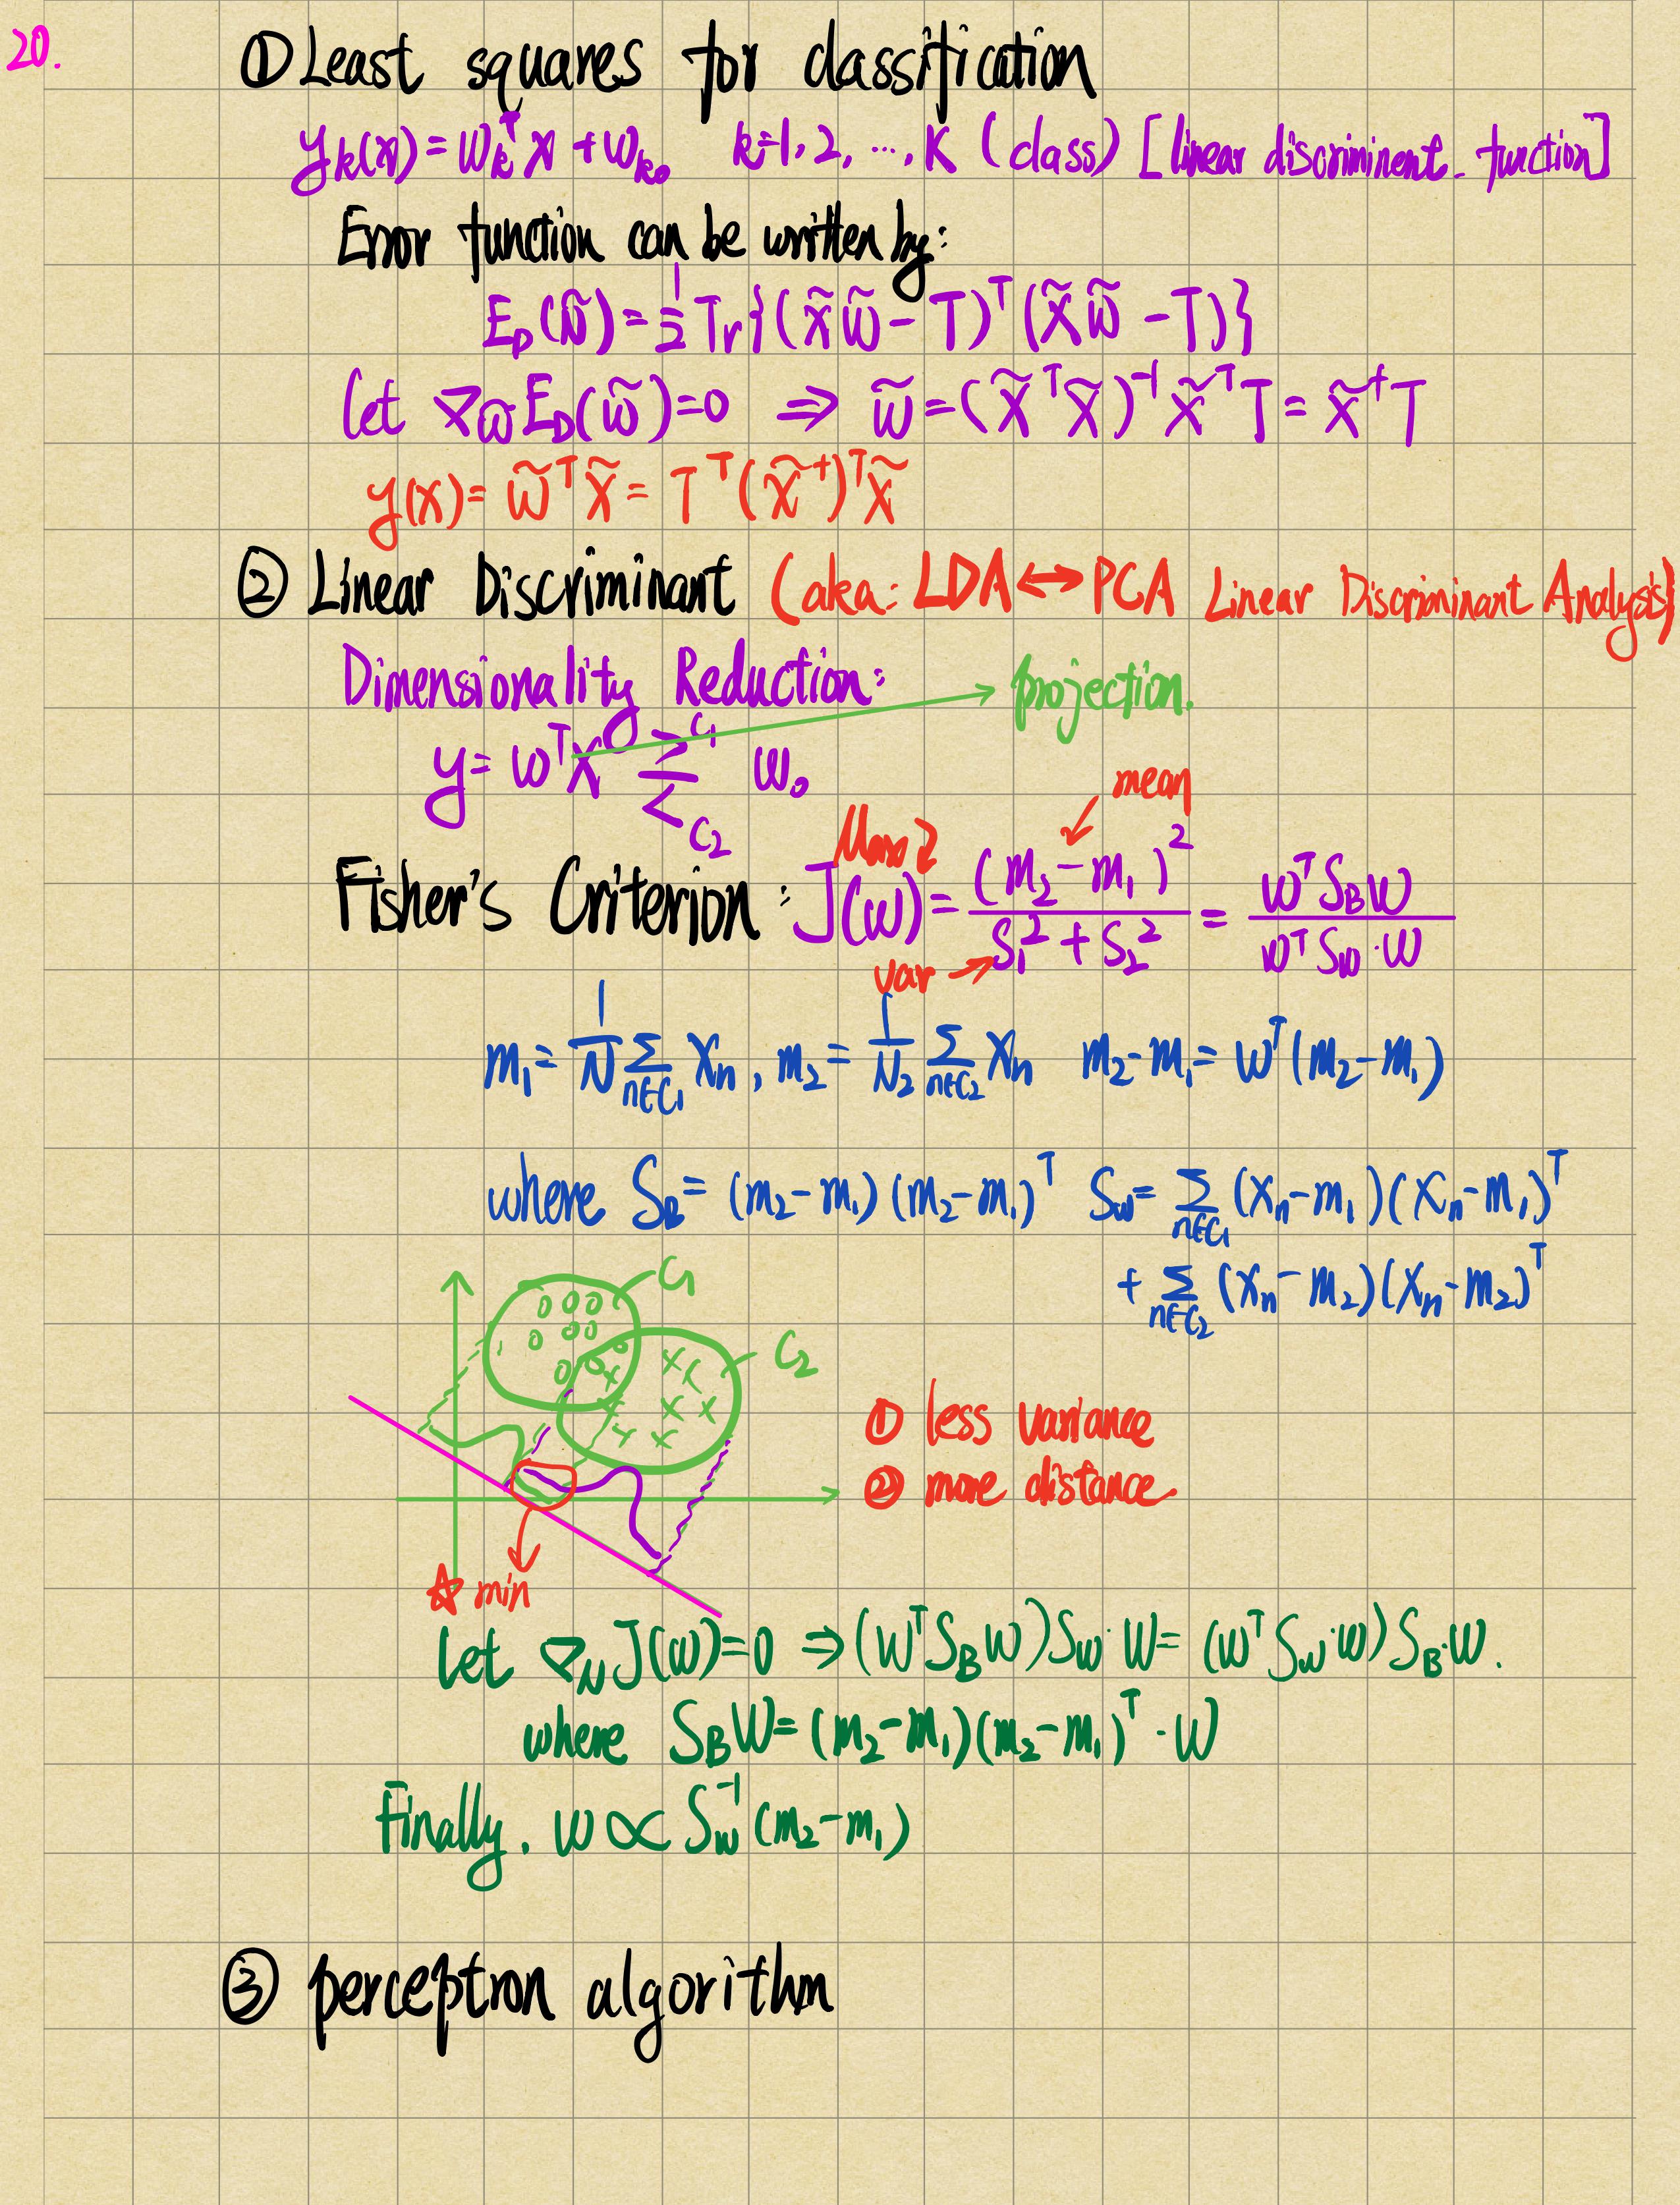 20.
① Least squares for classification
y_k(x) = w_k^T x + w_k0 k=1,2,...,K (class) [linear discriminent function]
Error function can be written by:
E_D(W̃) = 1/2 Tr{(X̃W̃ - T)^T (X̃W̃ - T)}
let ∇_W̃ E_D(W̃) = 0 ⇒ W̃ = (X̃^T X̃)^-1 X̃^T T = X̃^† T
y(x) = W̃^T X̃ = T^T (X̃^†)^T X̃
② Linear Discriminant (aka: LDA ↔ PCA Linear Discriminant Analysis)
Dimensionality Reduction: projection.
y = w^T x ≷ w_0
C1
C2
mean
Max
Fisher's Criterion: J(w) = (m_2 - m_1)^2 / (S_1^2 + S_2^2) = w^T S_B w / w^T S_w · w
var
m_1 = 1/N Σ_{n∈C_1} x_n, m_2 = 1/N_2 Σ_{n∈C_2} x_n m_2 - m_1 = w^T (m_2 - m_1)
where S_B = (m_2 - m_1)(m_2 - m_1)^T S_w = Σ_{n∈C_1} (x_n - m_1)(x_n - m_1)^T
+ Σ_{n∈C_2} (x_n - m_2)(x_n - m_2)^T
C1
C2
① less variance
② more distance.
☆ min
let ∇_w J(w) = 0 ⇒ (w^T S_B w) S_w · w = (w^T S_w · w) S_B · w.
where S_B w = (m_2 - m_1)(m_2 - m_1)^T · w
Finally, w ∝ S_w^-1 (m_2 - m_1)
③ perceptron algorithm